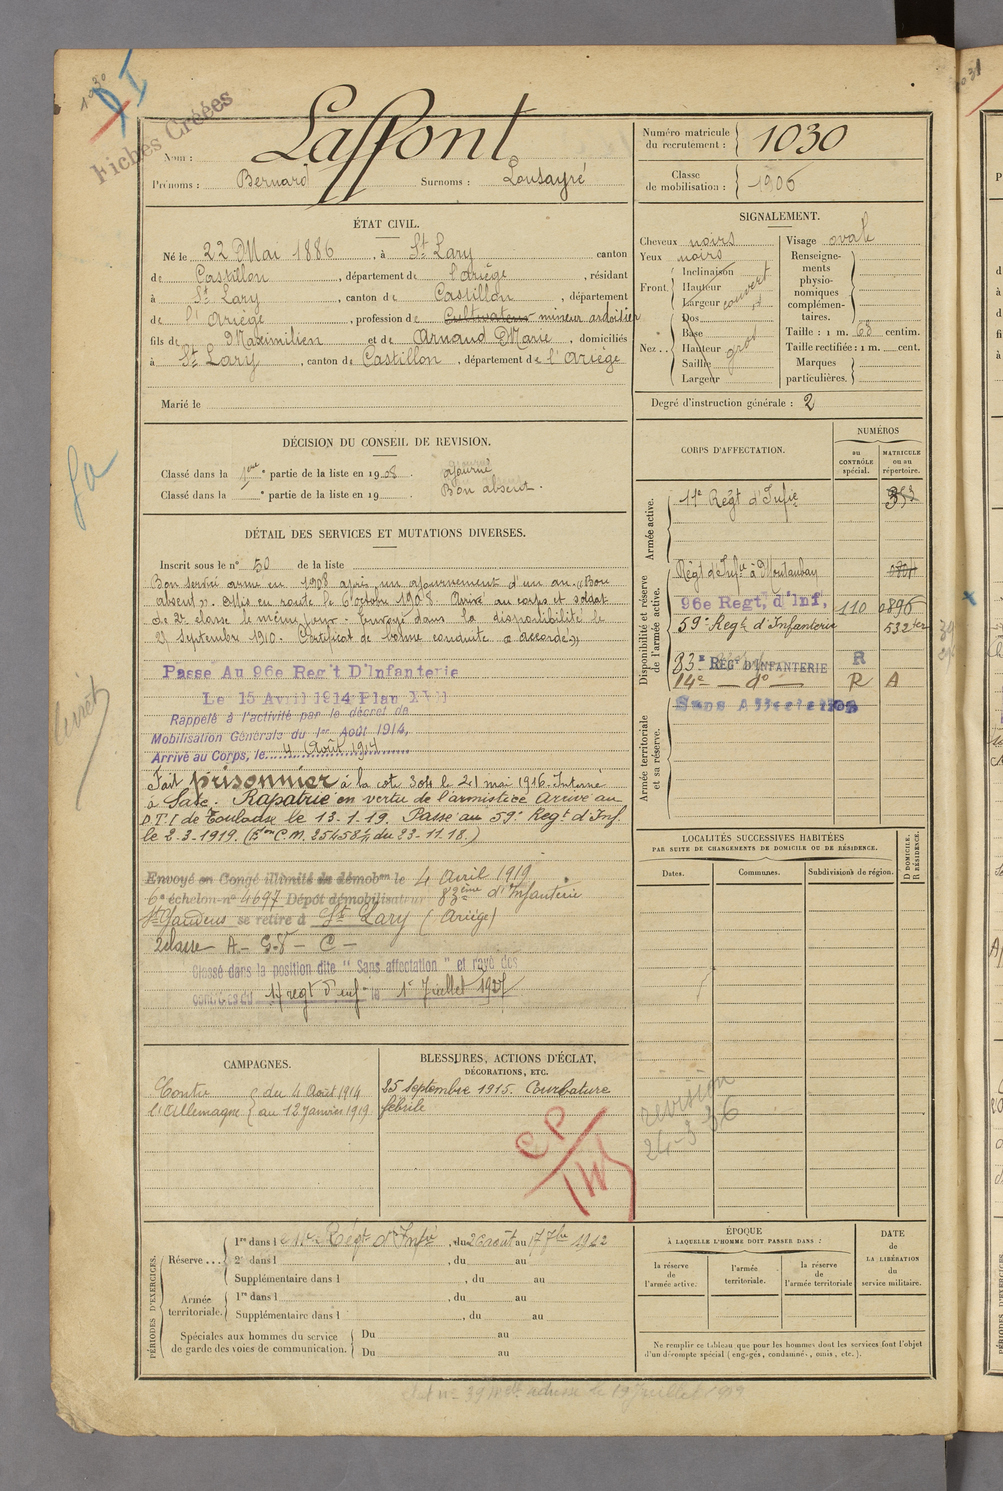 1030
DI
Fiches Créées
Nom : Laffont
Prénoms : Bernard Surnoms : Lousayré
Numéro matricule
du recrutement : 1030
Classe
de mobilisation : 1906
ÉTAT CIVIL.
Né le 22 Mai 1886, à St Lary canton
de Castillon, département de l'Ariège, résidant
à St Lary, canton de Castillon, département
de l'Ariège, profession de Cultivateur mineur ardoisier
fils de Maximilien et de Arnaud Marie, domiciliés
à St Lary, canton de Castillon, département de l'Ariège
Marié le
SIGNALEMENT.
Cheveux noirs
Yeux noirs
Front. Inclinaison
Hauteur
Largeur couvert
Nez.. Dos
Base
Hauteur gros
Saillie
Largeur
Visage ovale
Renseigne-
ments
physio-
nomiques
complémen-
taires.
Taille : 1 m. 68 centim.
Taille rectifiée : 1 m. cent.
Marques
particulières.
Degré d'instruction générale : 2
DÉCISION DU CONSEIL DE REVISION.
Classé dans la 1ère partie de la liste en 1908 ajourné
Classé dans la 1e partie de la liste en 19 . Bon absent.
CORPS D'AFFECTATION.
NUMÉROS
au
CONTRÔLE
spécial.
MATRICULE
ou au
répertoire.
Armée active.
11e Régt d'Infie 353
Disponibilité et réserve
de l'armée active.
Régt d'Infie à Montauban
96e Regt, d'Inf, 110 0896
59e Regt d'Infanterie 532 ter
83e REGT D'INFANTERIE R
14e — do — R A
Armée territoriale
et sa réserve.
Sans Affectation
DÉTAIL DES SERVICES ET MUTATIONS DIVERSES.
Inscrit sous le n° 50 de la liste
Bon service armé en 1908 après un ajournement d'un an. « Bon
absent ». Mis en route le 6 octobre 1908. Arrivé au corps et soldat
de 2e classe le même jour. Envoyé dans la disponibilité le
25 septembre 1910. Certificat de bonne conduite « accordé »
Passe Au 96e Reg't D'Infanterie
Le 15 Avril 1914 Plan XVII
Rappelé à l'activité par le décret de
Mobilisation Générale du 1er Août 1914,
Arrivé au Corps, le 4 Août 1914
Fait prisonnier à la cote 304 le 21 mai 1916. Interné
à . Rapatrié en vertu de l'armistice Arrivé au
D.T.I de Toulouse le 13.1.19. Passé au 59e Regt d'Inf
le 2.3.1919. (Don C.M. 25458 1/7 du 23.11.18.)
Envoyé en Congé illimité de démobon le 4 Avril 1919
6e échelon n° 4697 Dépôt démobilisateur 83ème d'Infanterie
St Gaudens se retire à St Lary (Ariège)
2 classe A — G.V — C —
Classé dans la position dite " Sans affectation " et rayé des
contrôles du 14 regt d'inf le 1er Juillet 1927
LOCALITÉS SUCCESSIVES HABITÉES
PAR SUITE DE CHANGEMENTS DE DOMICILE OU DE RÉSIDENCE.
Dates.
Communes.
Subdivisions de région.
D DOMICILE.
R RÉSIDENCE.
revision
24-3 36
CAMPAGNES.
Contre du 4 Août 1914
l'Allemagne au 12 Janvier 1919
BLESSURES, ACTIONS D'ÉCLAT,
DÉCORATIONS, ETC.
25 Septembre 1915. Courbature
fébrile
PÉRIODES D'EXERCICES.
Réserve... 1re dans l 11e Régt d'Infie, du 26 août au 17 7bre 1912
2e dans l , du au
Supplémentaire dans l , du au
Armée
territoriale. 1re dans l , du au
Supplémentaire dans l , du au
Spéciales aux hommes du service
de garde des voies de communication. Du au
Du au
ÉPOQUE
À LAQUELLE L'HOMME DOIT PASSER DANS :
la réserve
de
l'armée active.
l'armée
territoriale.
la réserve
de
l'armée territoriale
DATE
de
LA LIBÉRATION
du
service militaire.
Ne remplir ce tableau que pour les hommes dont les services font l'objet
d'un décompte spécial (engagés, condamnés, omis, etc.).